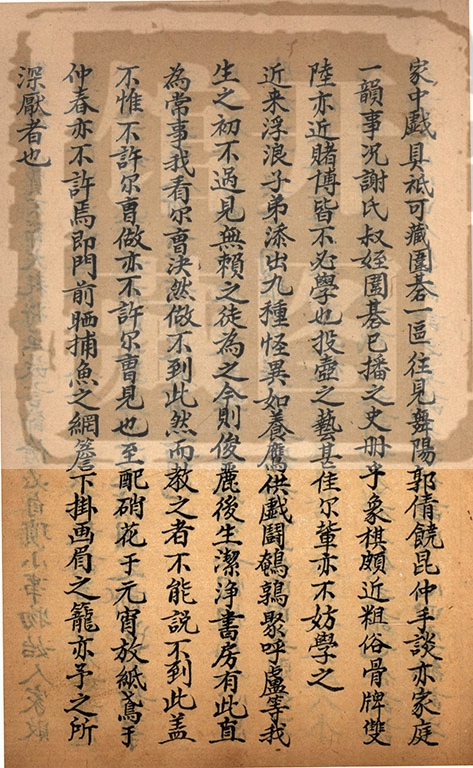 家中戯具祗可藏圍碁一區往見舞陽郭倩饒昆仲手談亦家庭
一韻事况謝氏叔姪圍碁已播之史册乎象棋頗近粗俗骨牌雙
陸亦近賭博皆不必學也投壺之藝甚佳尔輩亦不妨學之
近来浮浪子弟添出九種怪異如養鷹供戲鬪鵪鶉聚呼盧等我
生之初不過見無賴之徒為之今則俊麗後生潔浄書房有此直
為常事我看尔曹决然做不到此然而教之者不能説不到此盖
不惟不許尔曹做亦不許尔曹見也至配硝花于元宵放紙鳶于
仲春亦不許焉即門前晒捕魚之網簷下掛画眉之籠亦予之所
深厭者也